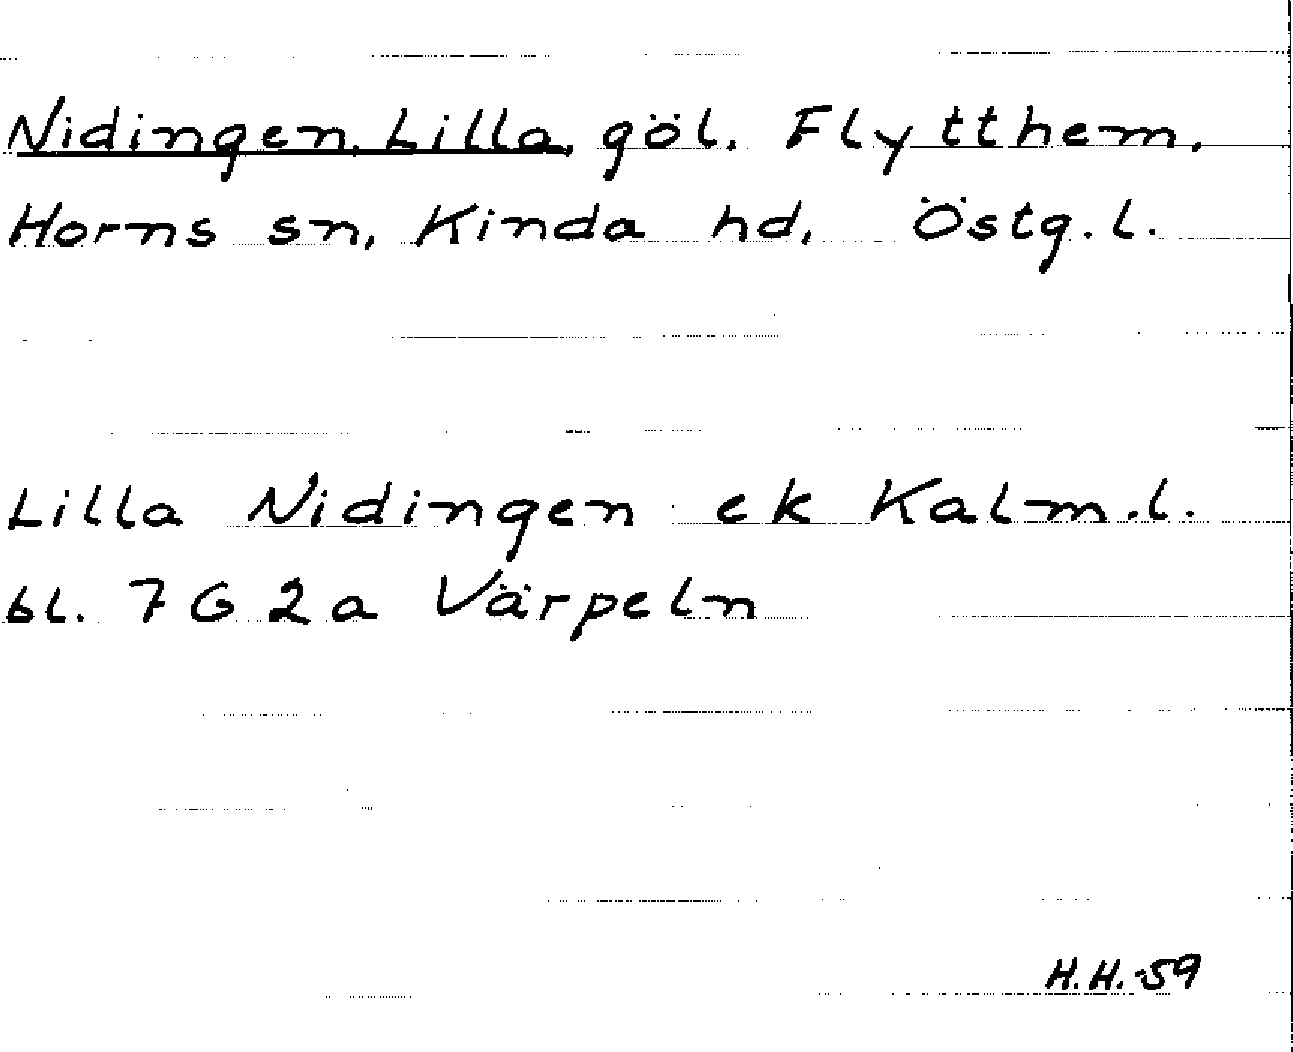 Nidingen, Lilla, göl. Flytthem,
Horns sn, Kinda hd, Östg.l.
Lilla Nidingen ek Kalm.l.
bl. 7 G 2a Värpeln
H.H.-59